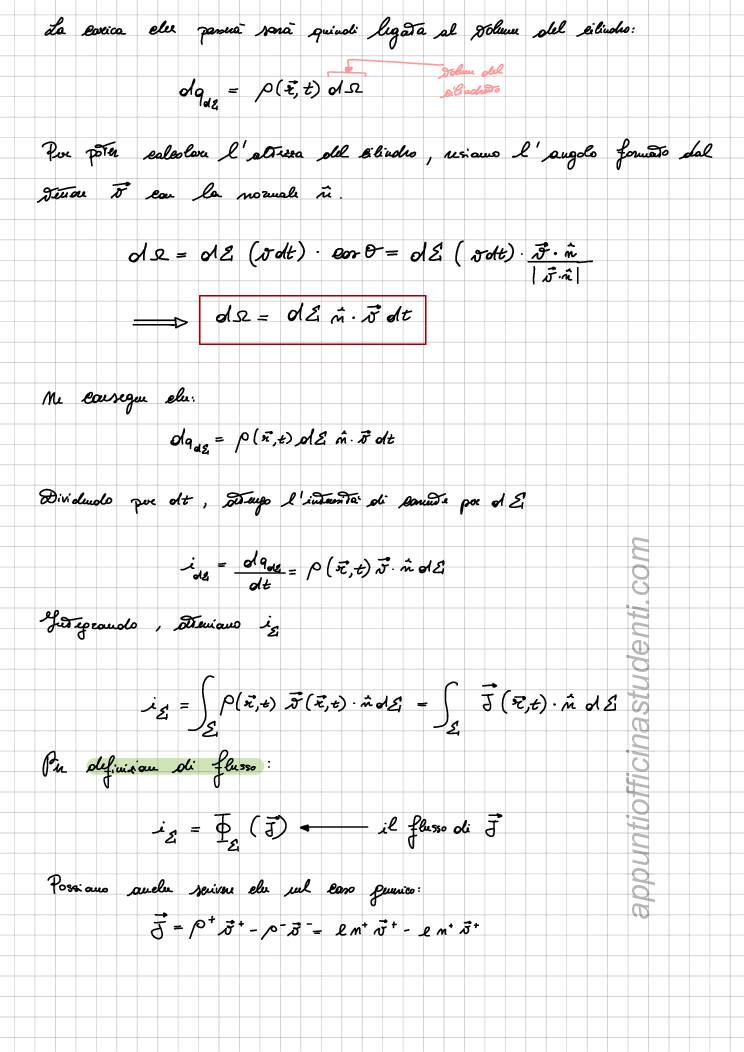 La carica che passerà sarà quindi legata al volume del cilindro:
dq_dΣ = ρ(r⃗,t) dΩ
volume del
cilindretto
Per poter calcolare l'altezza del cilindro, usiamo l'angolo formato dal
vettore v⃗ con la normale n̂.
dΩ = dΣ (vdt) · cos θ = dΣ (vdt) · v⃗·n̂ / |v⃗·n̂|
⟹ dΩ = dΣ n̂ · v⃗ dt
Ne consegue che:
dq_dΣ = ρ(r⃗,t) dΣ n̂ · v⃗ dt
Dividendo per dt, ottengo l'intensità di corrente per dΣ
i_dΣ = dq_dΣ / dt = ρ(r⃗,t) v⃗ · n̂ dΣ
Integrando, otteniamo i_Σ
i_Σ = ∫_Σ ρ(r⃗,t) v⃗(r⃗,t) · n̂ dΣ = ∫_Σ J⃗(r⃗,t) · n̂ dΣ
Per definizione di flusso:
i_Σ = Φ_Σ (J⃗) ⟵ il flusso di J⃗
Possiamo anche scrivere che nel caso generico:
J⃗ = ρ⁺ v⃗⁺ - ρ⁻ v⃗⁻ = e n⁺ v⃗⁺ - e n⁺ v⃗⁺
appuntiofficinastudenti.com